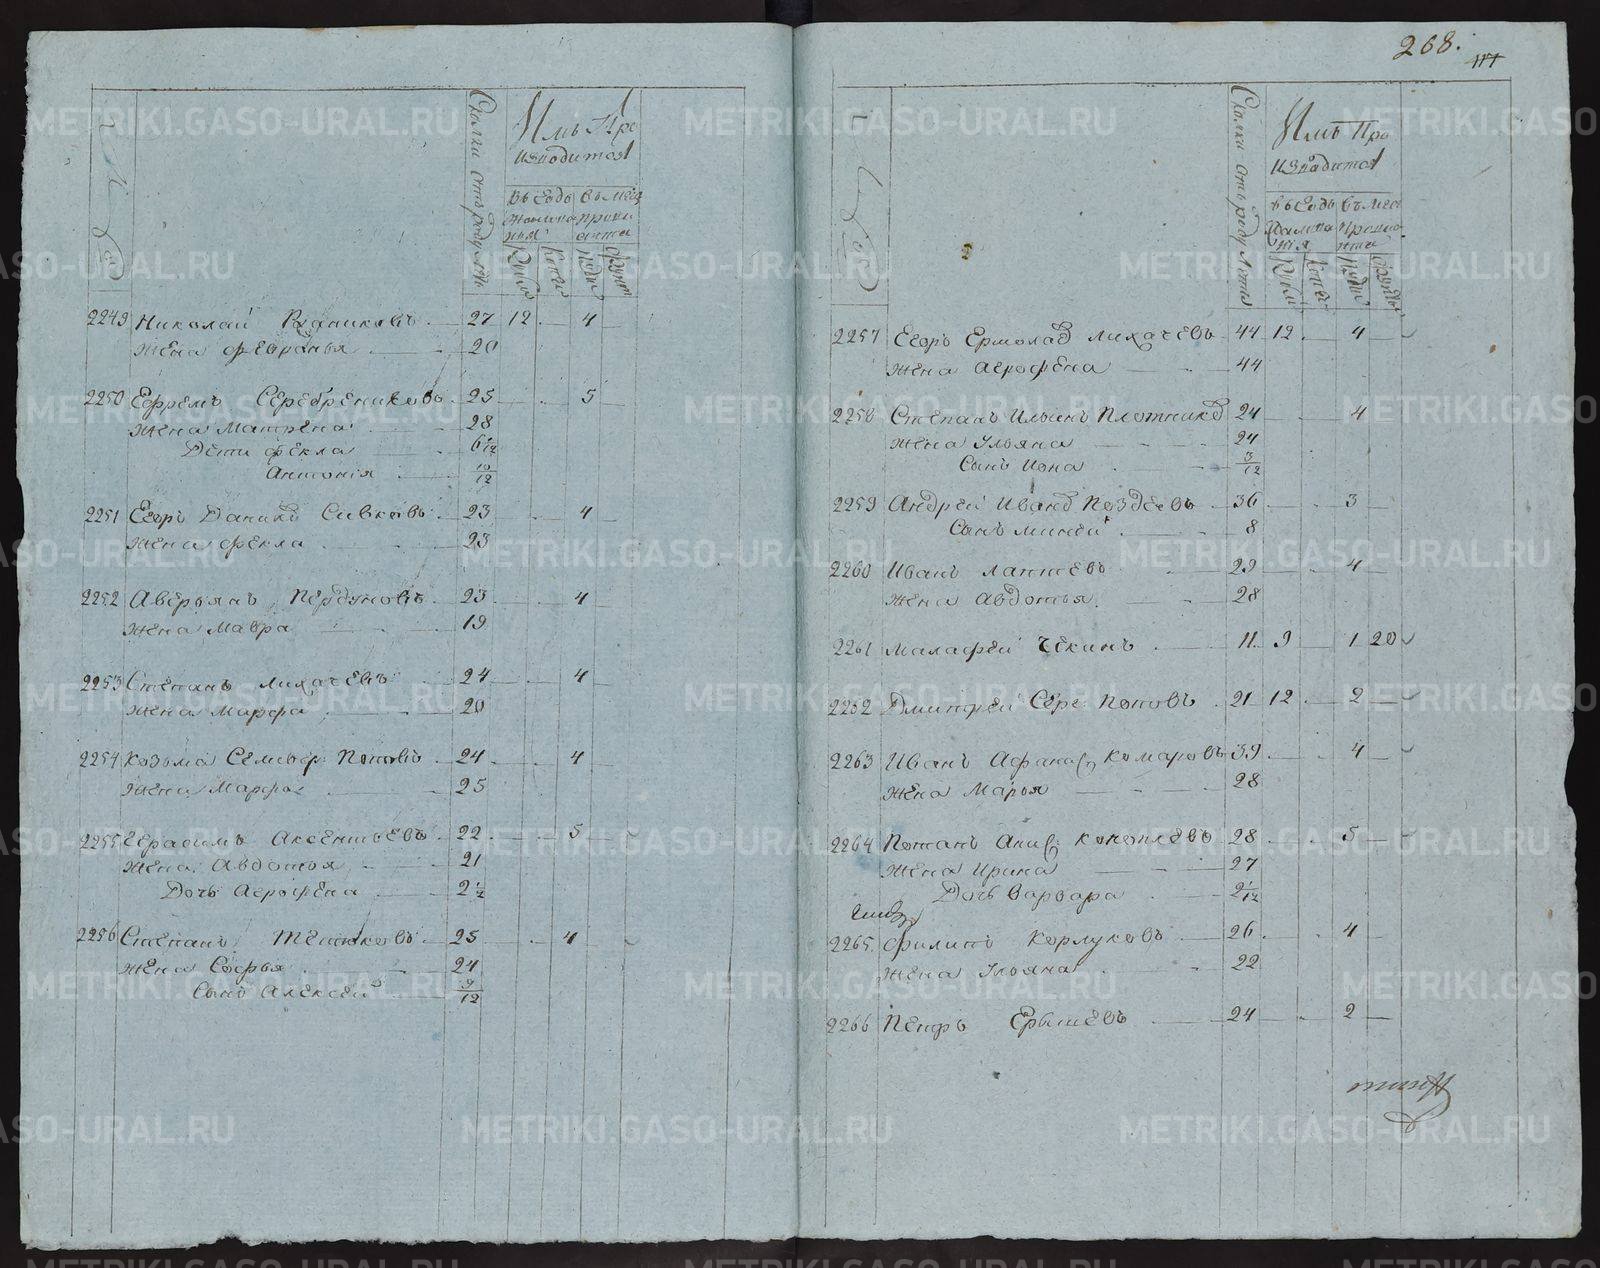 268.
Сколки отъ роду летъ
Имъ Про
изводится
въ годъ
жалова
ньи
въ меся
прови
анта
Рубли
Копеи
пуды
фунт
2249 Николай Родниковъ 27 12 4
жена февронья 20
2250 Ефремъ Серебрениковъ 25 5
жена Матрена 28
Дети фекла 6 1/12
Антонiя 10/12
2251 Егоръ Данилов Сивковъ 23 4
жена фекла 23
2252 Аверьянъ Пердуновъ 23 4
жена Мавра 19
2253 Степанъ Лихачевъ 24 4
жена Марфа 20
2254 Козьма Семьвр Поповъ 24 4
жена Марфа 25
2255 Герасимъ Аксентьевъ 22 5
жена Авдотья 21
Дочь Агрофена 2 1/2
2256 Степанъ Тетюковъ 25 4
жена Софья 24
Сынъ Алексей 9/12
Сколки отъ роду летъ
Имъ Про
изводится
въ годъ
жалова
нiя
въ меся
провиа
нта
Рубли
Копеи
пуды
фунты
2257 Егоръ Ермолаев Лихачевъ 44 12 4
жена Агрофена 44
2258 Степанъ Ильинъ Плотников 24 4
жена Ульяна 24
Сынъ Иона 3/12
2259 Андрей Иванов Поздеевъ 36 3
Сынъ Миней 8
2260 Иванъ Лаптевъ 29 4
жена Авдотья 28
2261 Малафей Чекинъ 11 9 1 20
2262 Дмитрей Серг Поповъ 21 12 2
2263 Иванъ Афанас Комаровъ 39 4
жена Марья 28
2264 Потапъ Анис Коноплевъ 28 5
жена Ирина 27
Дочь Варвара 2 1/12
2265 Филипъ Корлуковъ 26 4
жена Ульяна 22
2266 Петръ Ерышевъ 24 2